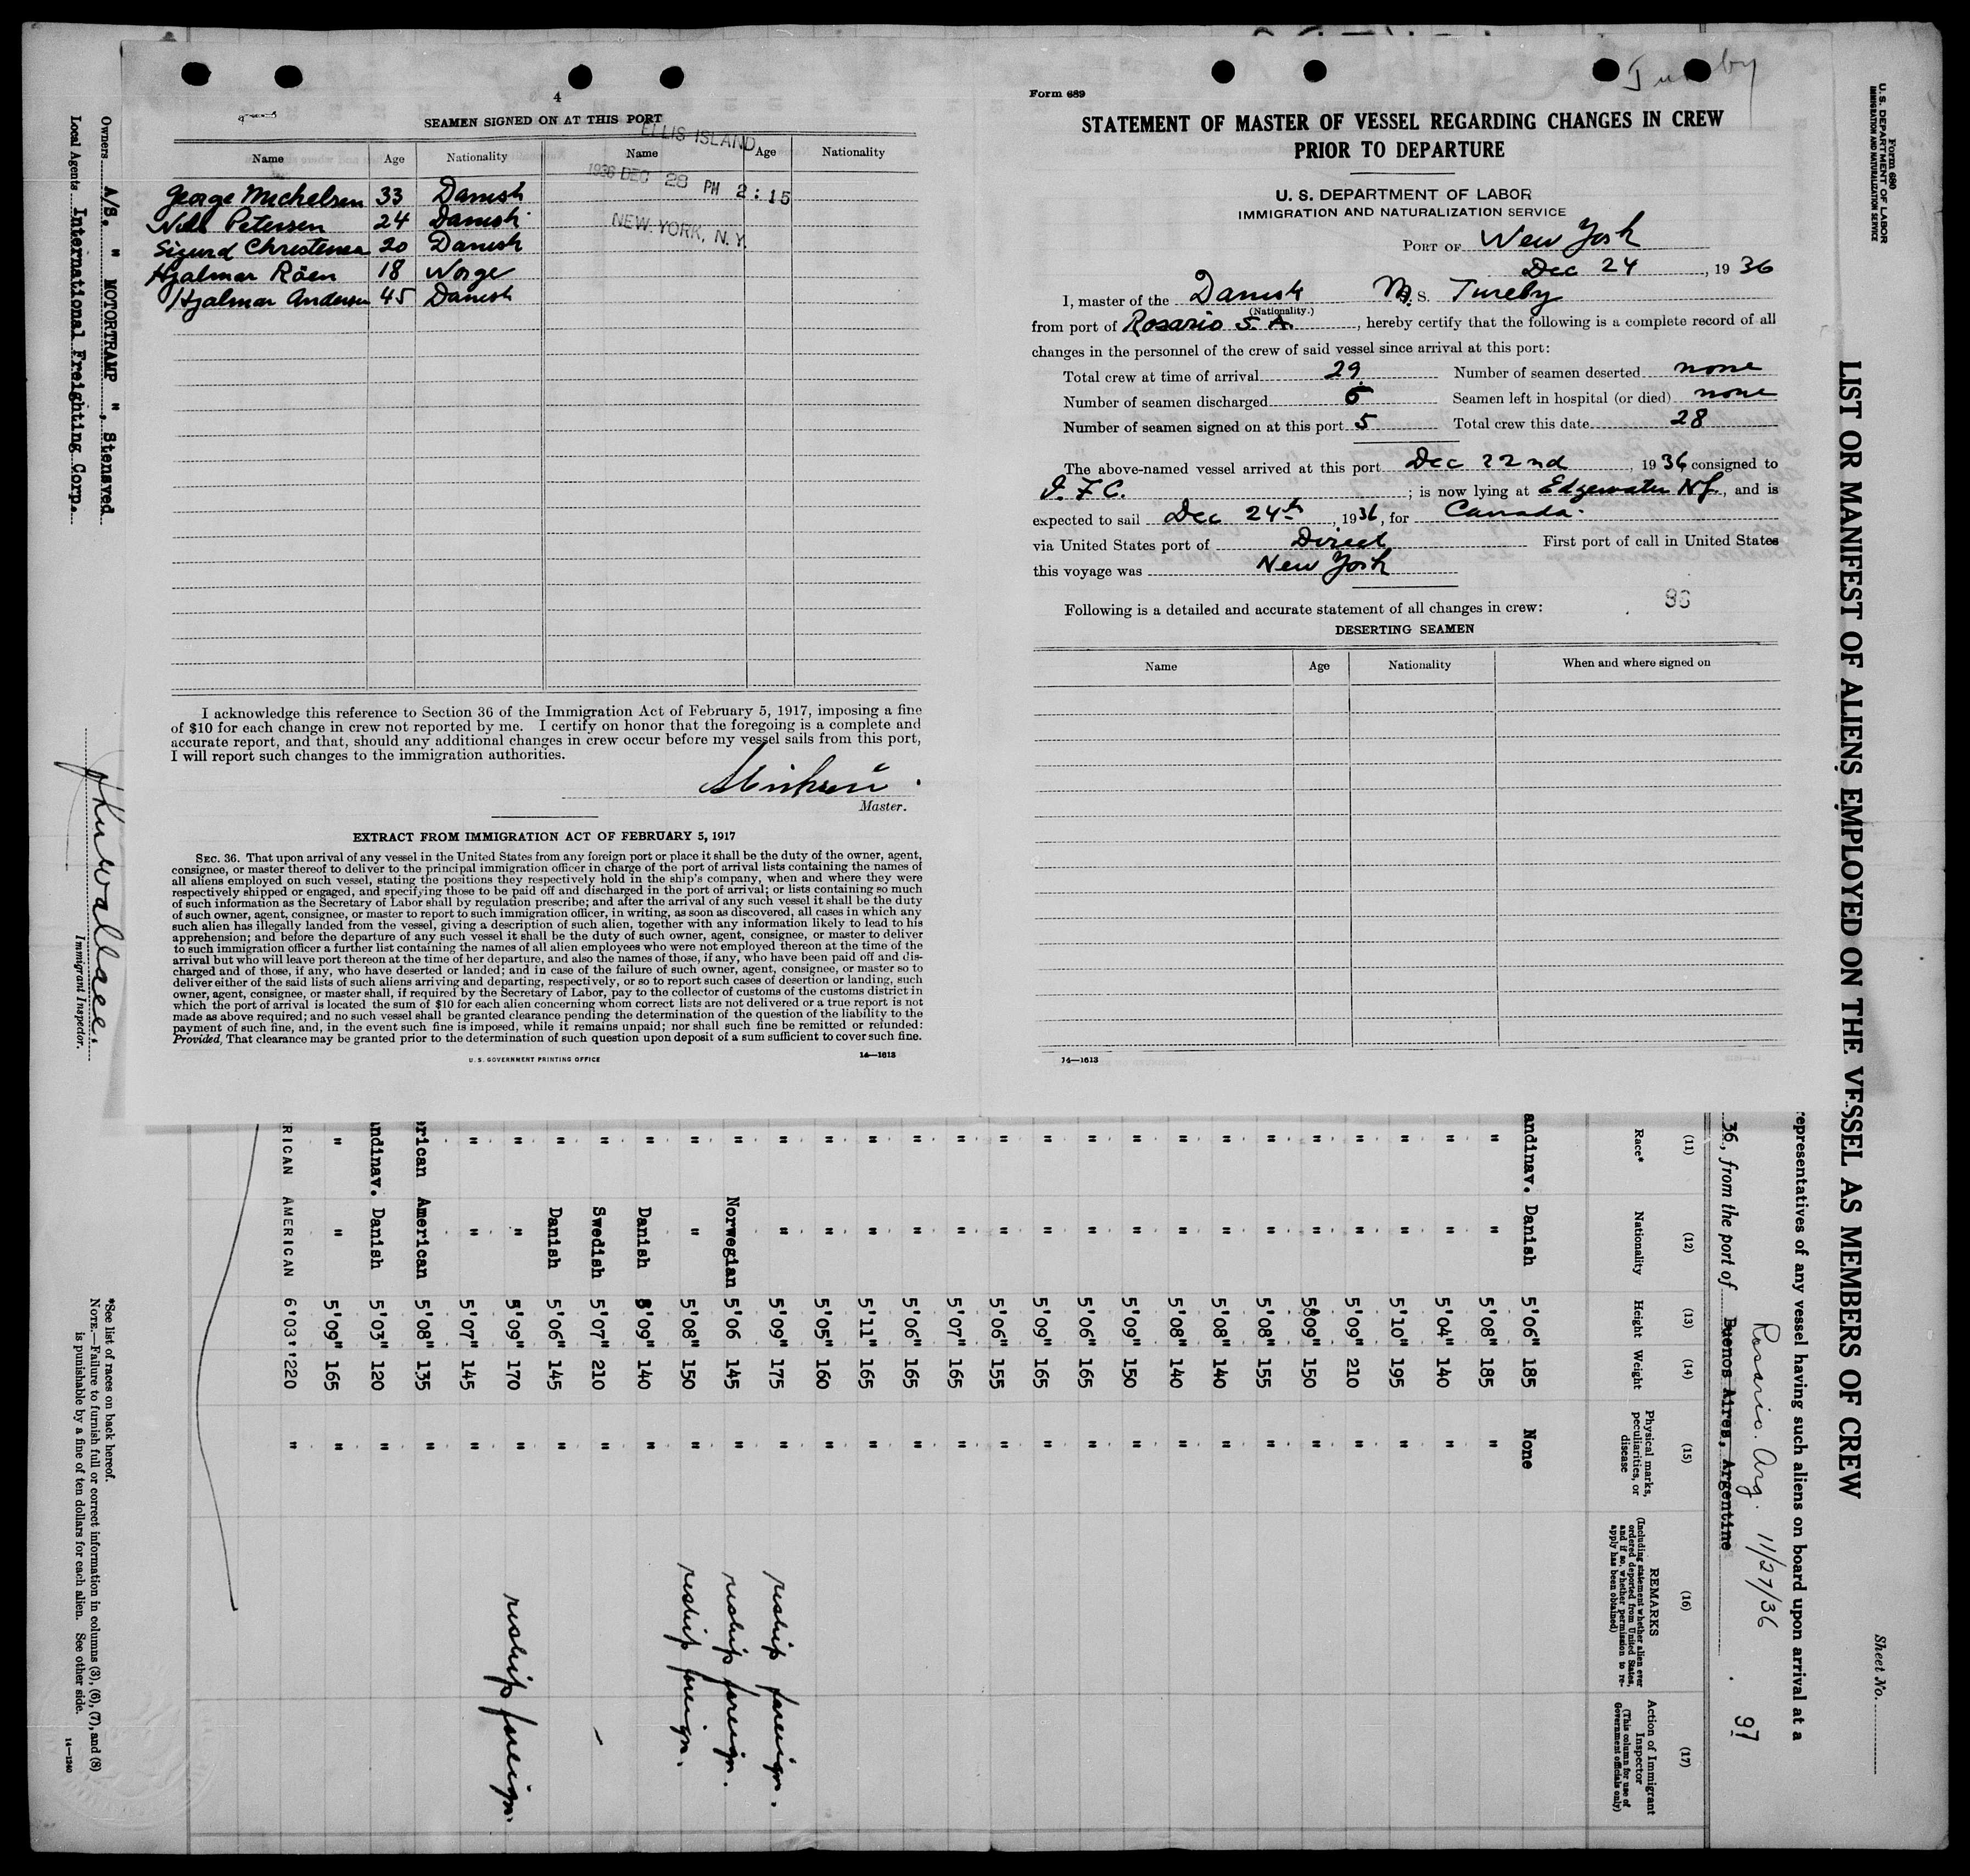 4
SEAMEN SIGNED ON AT THIS PORT
ELLIS ISLAND
1936 DEC 28 PM 2:15
NEW YORK, N.Y.
Name Age Nationality Name Age Nationality
George Michelsen 33 Danish
Petersen 24 Danish
Sigurd Christensen 20 Danish
Hjalmar Röen 18 Norge
Hjalmar Andersen 45 Danish
I acknowledge this reference to Section 36 of the Immigration Act of February 5, 1917, imposing a fine
of $10 for each change in crew not reported by me. I certify on honor that the foregoing is a complete and
accurate report, and that, should any additional changes in crew occur before my vessel sails from this port,
I will report such changes to the immigration authorities.
Master.
EXTRACT FROM IMMIGRATION ACT OF FEBRUARY 5, 1917
SEC. 36. That upon arrival of any vessel in the United States from any foreign port or place it shall be the duty of the owner, agent,
consignee, or master thereof to deliver to the principal immigration officer in charge of the port of arrival lists containing the names of
all aliens employed on such vessel, stating the positions they respectively hold in the ship's company, when and where they were
respectively shipped or engaged, and specifying those to be paid off and discharged in the port of arrival; or lists containing so much
of such information as the Secretary of Labor shall by regulation prescribe; and after the arrival of any such vessel it shall be the duty
of such owner, agent, consignee, or master to report to such immigration officer, in writing, as soon as discovered, all cases in which any
such alien has illegally landed from the vessel, giving a description of such alien, together with any information likely to lead to his
apprehension; and before the departure of any such vessel it shall be the duty of such owner, agent, consignee, or master to deliver
to such immigration officer a further list containing the names of all alien employees who were not employed thereon at the time of the
arrival but who will leave port thereon at the time of her departure, and also the names of those, if any, who have been paid off and dis-
charged and of those, if any, who have deserted or landed; and in case of the failure of such owner, agent, consignee, or master so to
deliver either of the said lists of such aliens arriving and departing, respectively, or so to report such cases of desertion or landing, such
owner, agent, consignee, or master shall, if required by the Secretary of Labor, pay to the collector of customs of the customs district in
which the port of arrival is located the sum of $10 for each alien concerning whom correct lists are not delivered or a true report is not
made as above required; and no such vessel shall be granted clearance pending the determination of the question of the liability to the
payment of such fine, and, in the event such fine is imposed, while it remains unpaid; nor shall such fine be remitted or refunded:
Provided, That clearance may be granted prior to the determination of such question upon deposit of a sum sufficient to cover such fine.
U. S. GOVERNMENT PRINTING OFFICE 14—1613
Tureby
Form 689
STATEMENT OF MASTER OF VESSEL REGARDING CHANGES IN CREW
PRIOR TO DEPARTURE
U. S. DEPARTMENT OF LABOR
IMMIGRATION AND NATURALIZATION SERVICE
PORT OF New York
Dec 24, 1936
I, master of the Danish M. S. Tureby
(Nationality.)
from port of Rosario S. A., hereby certify that the following is a complete record of all
changes in the personnel of the crew of said vessel since arrival at this port:
Total crew at time of arrival 29 Number of seamen deserted none
Number of seamen discharged 6 Seamen left in hospital (or died) none
Number of seamen signed on at this port 5 Total crew this date 28
The above-named vessel arrived at this port Dec 22nd, 1936 consigned to
I. F. C.; is now lying at Edgewater NJ., and is
expected to sail Dec 24th, 1936, for Canada.
via United States port of Direct First port of call in United States
this voyage was New York
Following is a detailed and accurate statement of all changes in crew:
DESERTING SEAMEN
Name Age Nationality When and where signed on
14—1613
Form 680
U. S. DEPARTMENT OF LABOR
IMMIGRATION AND NATURALIZATION SERVICE
Sheet No.
LIST OR MANIFEST OF ALIENS EMPLOYED ON THE VESSEL AS MEMBERS OF CREW
epresentatives of any vessel having such aliens on board upon arrival at a
Rosario. Arg. 11/27/36
36, from the port of Buenos Aires, Argentine
97
(11) (12) (13) (14) (15) (16) (17)
Race* Nationality Height Weight Physical marks, peculiarities, or disease REMARKS (Including statement whether alien ever ordered deported from United States, and if so, whether permission to re-apply has been obtained) Action of Immigrant Inspector (This column for use of Government officials only)
andinav. Danish 5'06" 185 None
" " 5'08" 185 "
" " 5'04" 140 "
" " 5'10" 195 "
" " 5'09" 210 "
" " 5809" 150 "
" " 5'08" 155 "
" " 5'08" 140 "
" " 5'08" 140 "
" " 5'09" 150 "
" " 5'06" 165 "
" " 5'09" 165 "
" " 5'06" 155 "
" " 5'07" 165 "
" " 5'06" 165 "
" " 5'11" 165 "
" " 5'05" 160 "
" " 5'09" 175 " reship foreign.
" Norwegian 5'06 145 " reship foreign.
" " 5'08" 150 " reship foreign.
" Danish 5'09" 140 "
" Swedish 5'07" 210 "
" Danish 5'06" 145 "
" " 5'09" 170 " reship foreign.
" " 5'07" 145 "
rican American 5'08" 135 "
ndinav. Danish 5'03" 120 "
" " 5'09" 165 "
RICAN AMERICAN 6'03'' 220 "
Owners A/S. " MOTORTRAMP ", Stensved
Local Agents International Freighting Corp.
Immigrant Inspector.
*See list of races on back hereof.
NOTE.—Failure to furnish full or correct information in columns (3), (6), (7), and (8)
is punishable by a fine of ten dollars for each alien. See other side.
14—1240